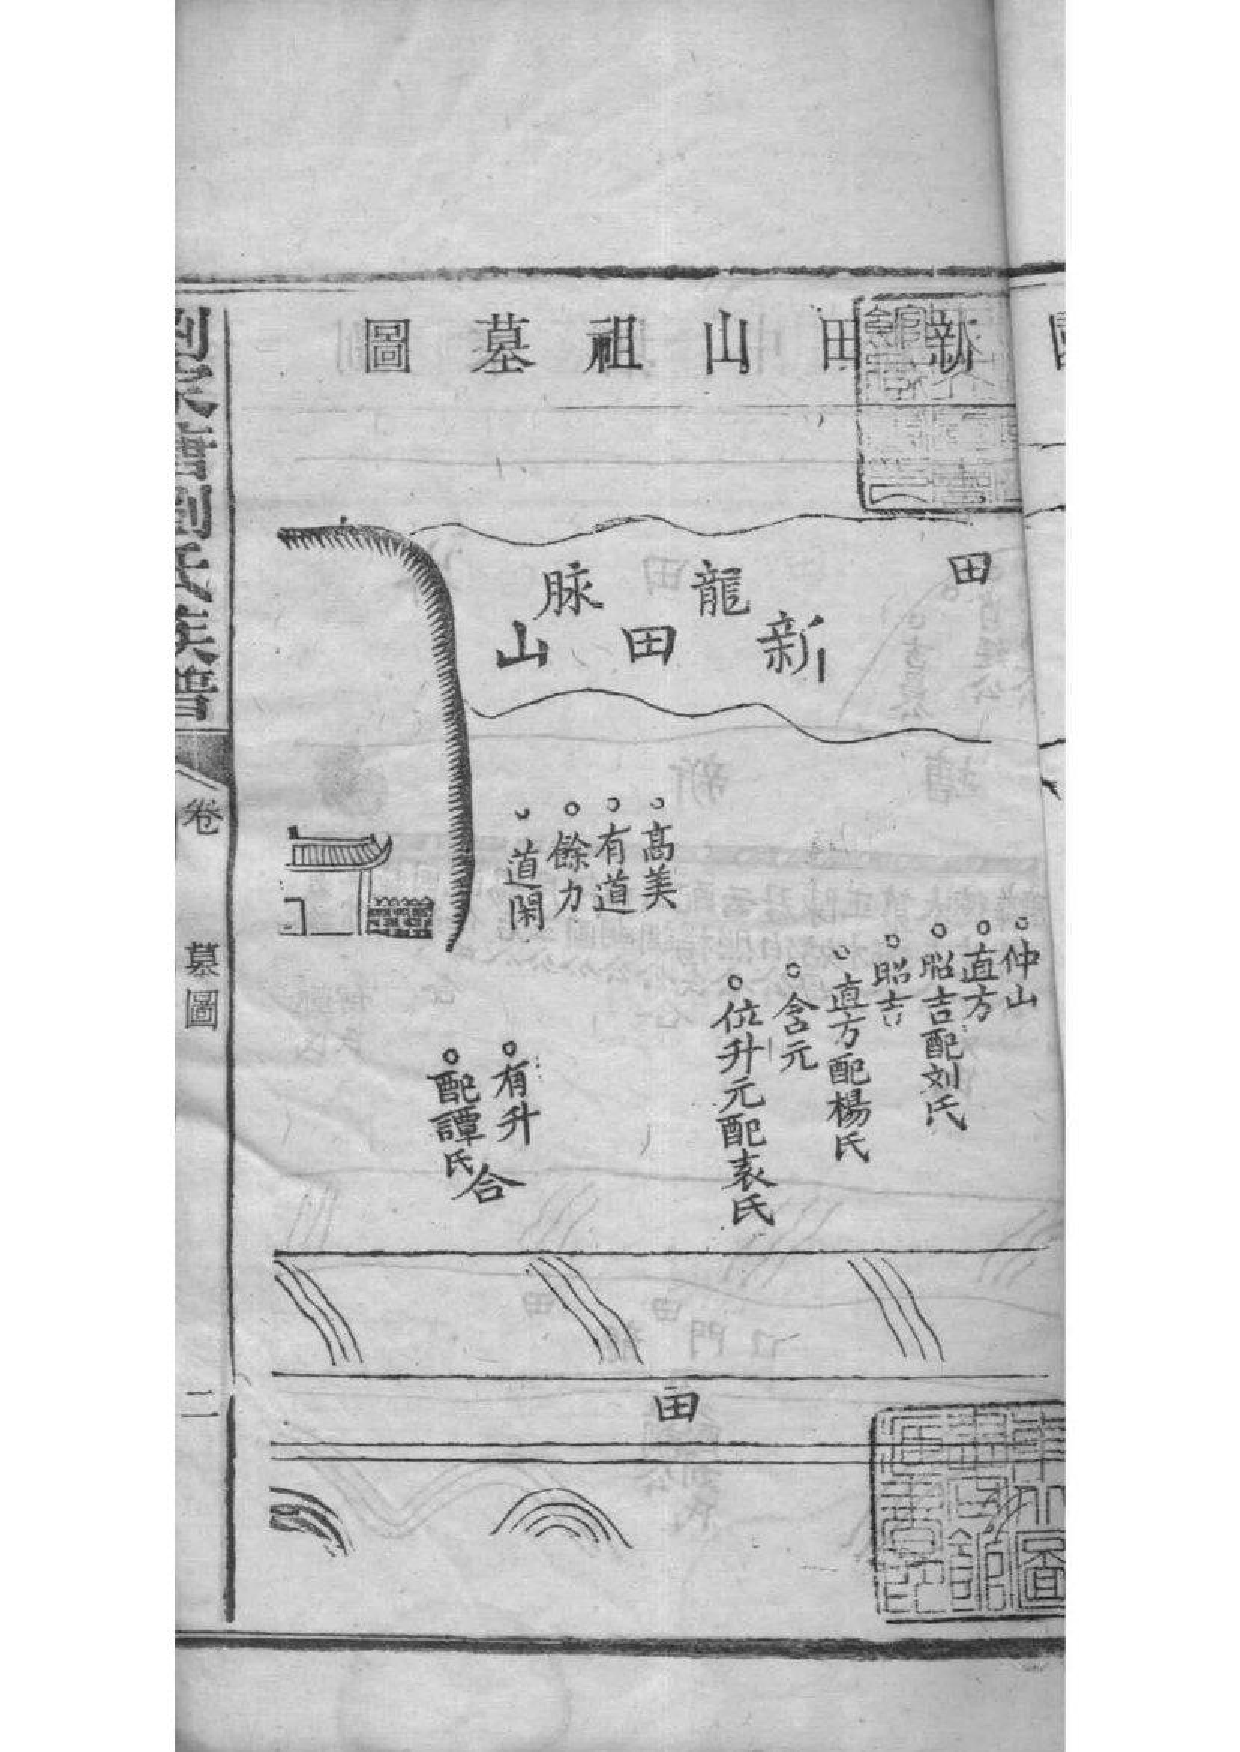 新田山祖墓圖
田
龍脉
新田山
仲山
直方
昭吉配刘氏
昭吉
直方配楊氏
含元
位升元配袁氏
高美
有道
餘力
道閑
有升
配譚氏
合
田
劉家塘劉氏族譜
卷
墓圖
二